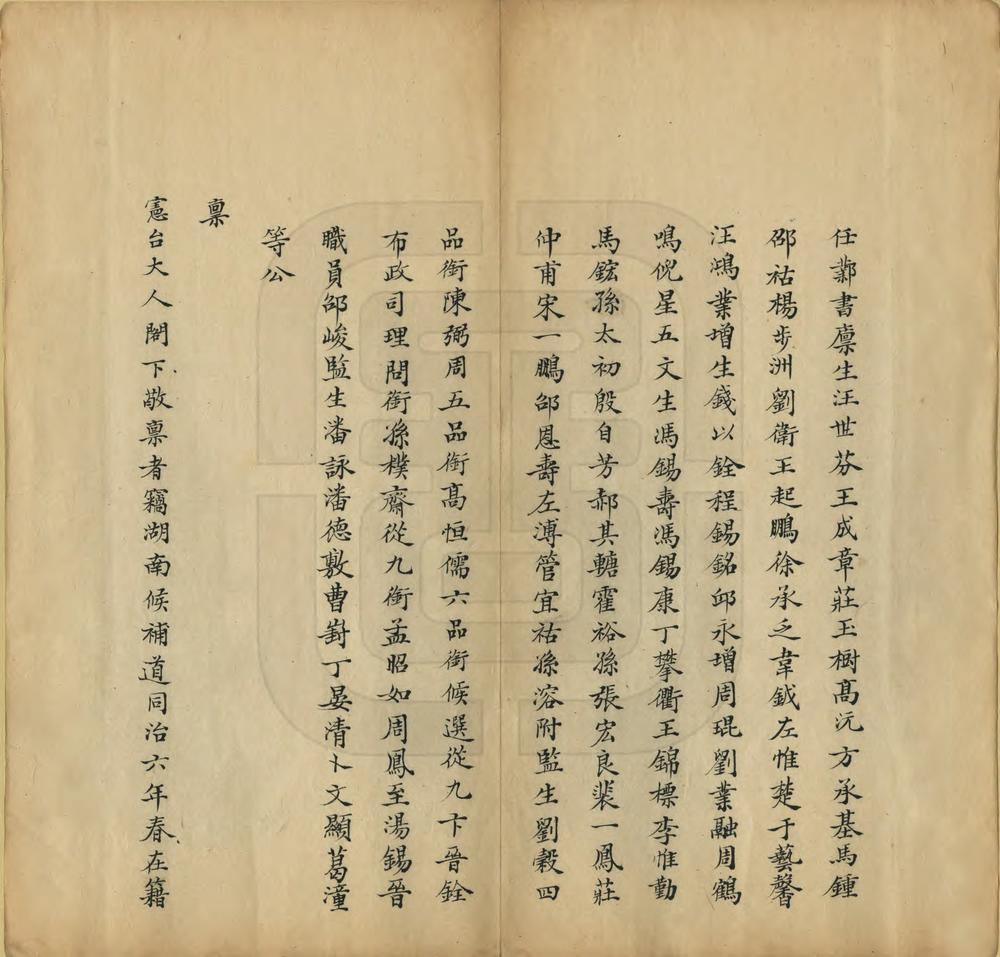 任鄴書廪生汪世芬王成章莊玉樹高沅方承基馬鍾
邵祜楊步洲劉衛王起鵬徐承之韋鉞左惟楚于藝馨
汪鴻業增生錢以銓程錫銘邱永增周琨劉業融周鶴
鳴倪星五文生馮錫壽馮錫康丁攀衢王錦標李惟勤
馬鋐孫太初殷自芳郝其轤霍裕孫張宏良裴一鳳莊
仲甫宋一鵬邰恩壽左溥管宜祜孫溶附監生劉穀四
品銜陳弼周五品銜高恒儒六品銜候選從九卞晉銓
布政司理問銜孫樸齋從九銜孟昭如周鳳至湯錫晉
職員邰峻監生潘詠潘德敷曹嶎丁晏清卜文顯葛潼
等公
稟
憲台大人閣下敬稟者竊湖南候補道同治六年春在籍